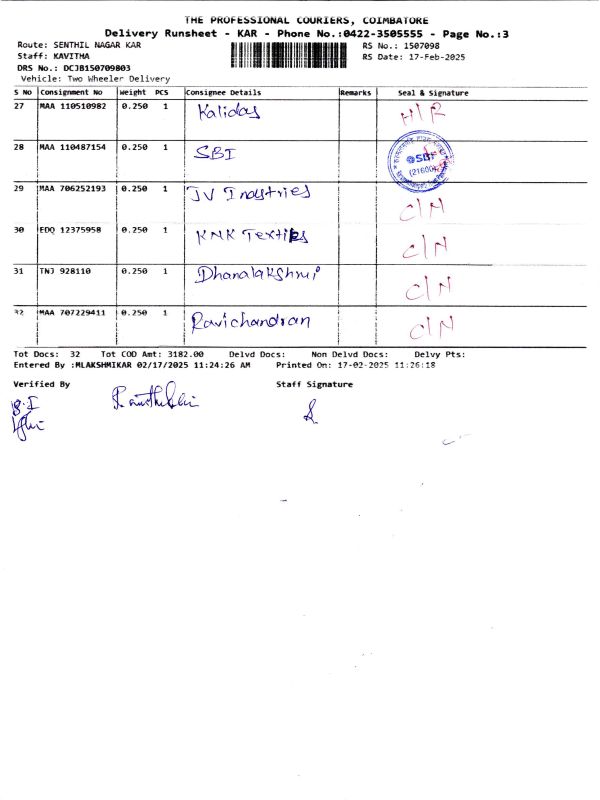 THE PROFESSIONAL COURIERS, COIMBATORE
Delivery Runsheet - KAR - Phone No.:0422-3505555 - Page No.:3
Route: SENTHIL NAGAR KAR RS No.: 1507098
Staff: KAVITHA RS Date: 17-Feb-2025
DRS No.: DCJB150709803
Vehicle: Two Wheeler Delivery
S No Consignment No Weight PCS Consignee Details Remarks Seal & Signature
27 MAA 110510982 0.250 1 Kalidas
28 MAA 110487154 0.250 1 SBI SBI
29 MAA 706252193 0.250 1 JV Inustries C/N
30 EDQ 12375958 0.250 1 KNK Textiles C/N
31 TNJ 928110 0.250 1 Dhanalakshmi C/N
32 MAA 707229411 0.250 1 Ravichandran C/N
Tot Docs: 32 Tot COD Amt: 3182.00 Delvd Docs: Non Delvd Docs: Delvy Pts:
Entered By :MLAKSHMIKAR 02/17/2025 11:24:26 AM Printed On: 17-02-2025 11:26:18
Verified By Staff Signature